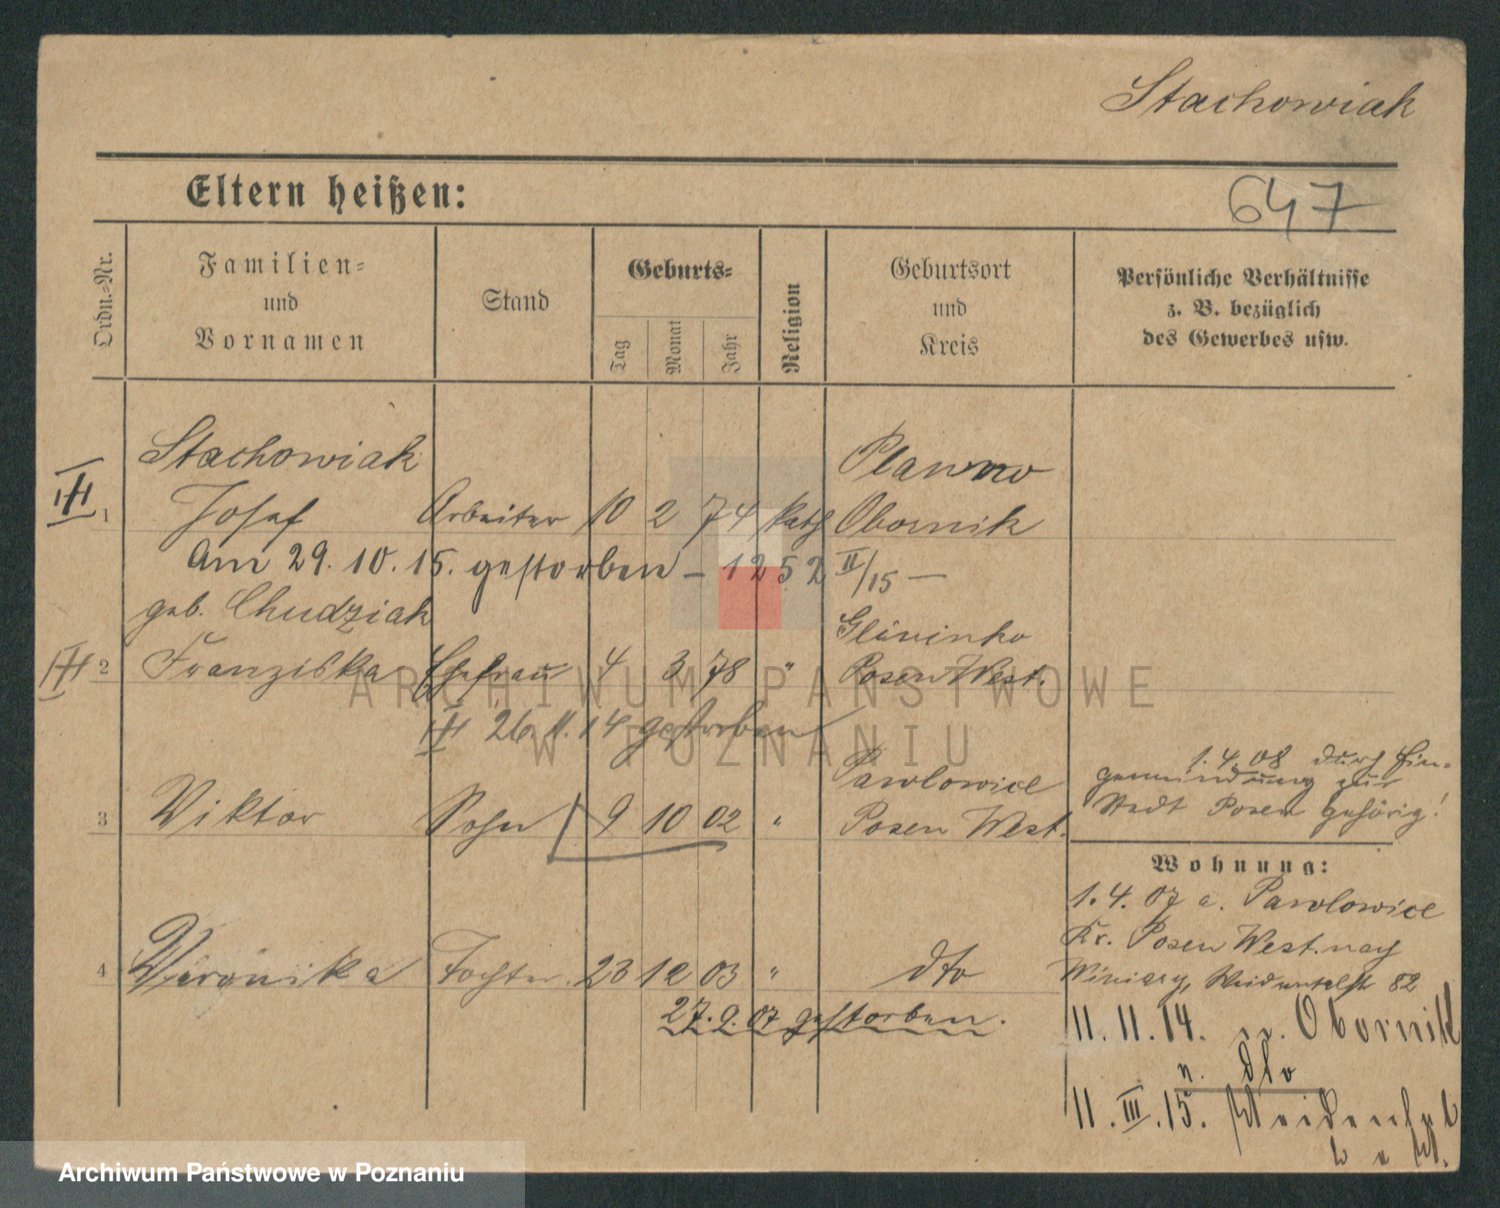 Stachowiak
Eltern heißen:
647
Ordn.-Nr.
Familien-
und
Vornamen
Stand
Geburts-
Tag
Monat
Jahr
Religion
Geburtsort
und
Kreis
Persönliche Verhältnisse
z. B. bezüglich
des Gewerbes usw.
Stachowiak Plawno
1 Josef Arbeiter 10 2 74 kath Obornik
Am 29. 10. 15. gestorben – 1252 II/15 –
geb. Chudziak Glinienko
2 Franziska Ehefrau 4 3 78 " Posen West.
26. 11. 14 gestorben
Pawlowice
3 Viktor Sohn 9 10 02 " Posen West.
1.4.08 durch Ein-
gemeindung zur
Stadt Posen gehörig!
4 Veronika Tochter 23 12 03 " dto
27.9.07 gestorben.
Wohnung:
1.4.07 a. Pawlowice
Kr. Posen West. nach
Winiary, 82
11. 11. 14. Obornik
n. dto
11. III. 15.
ARCHIWUM PAŃSTWOWE
W POZNANIU
Archiwum Państwowe w Poznaniu